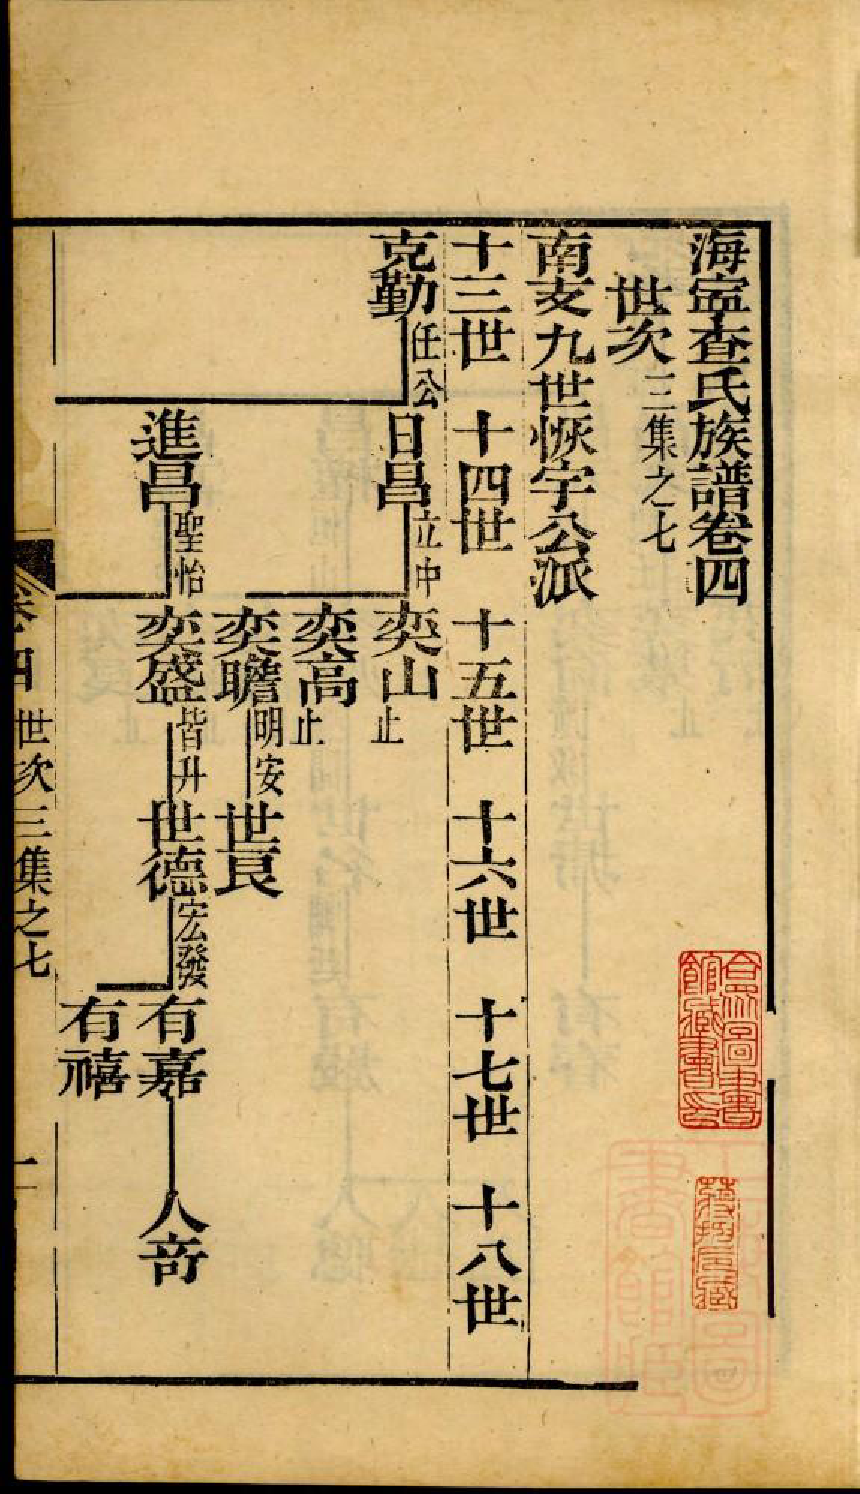 海寍查氏族譜卷四
世次三集之七
南支九世恢宇公派
十三世 十四世 十五世 十六世 十七世 十八世
克勤任公 日昌立中 奕山止
奕高止
奕瞻明安 世良
進昌聖怡 奕盛皆升 世德宏發 有嘉 人奇
有禧
卷四 世次三集之七 一